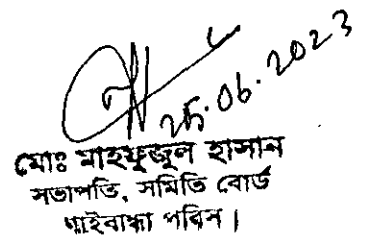 25.06.2023
মোঃ মাহফুজুল হাসান
সভাপতি, সমিতি বোর্ড
গাইবান্ধা পবিস।